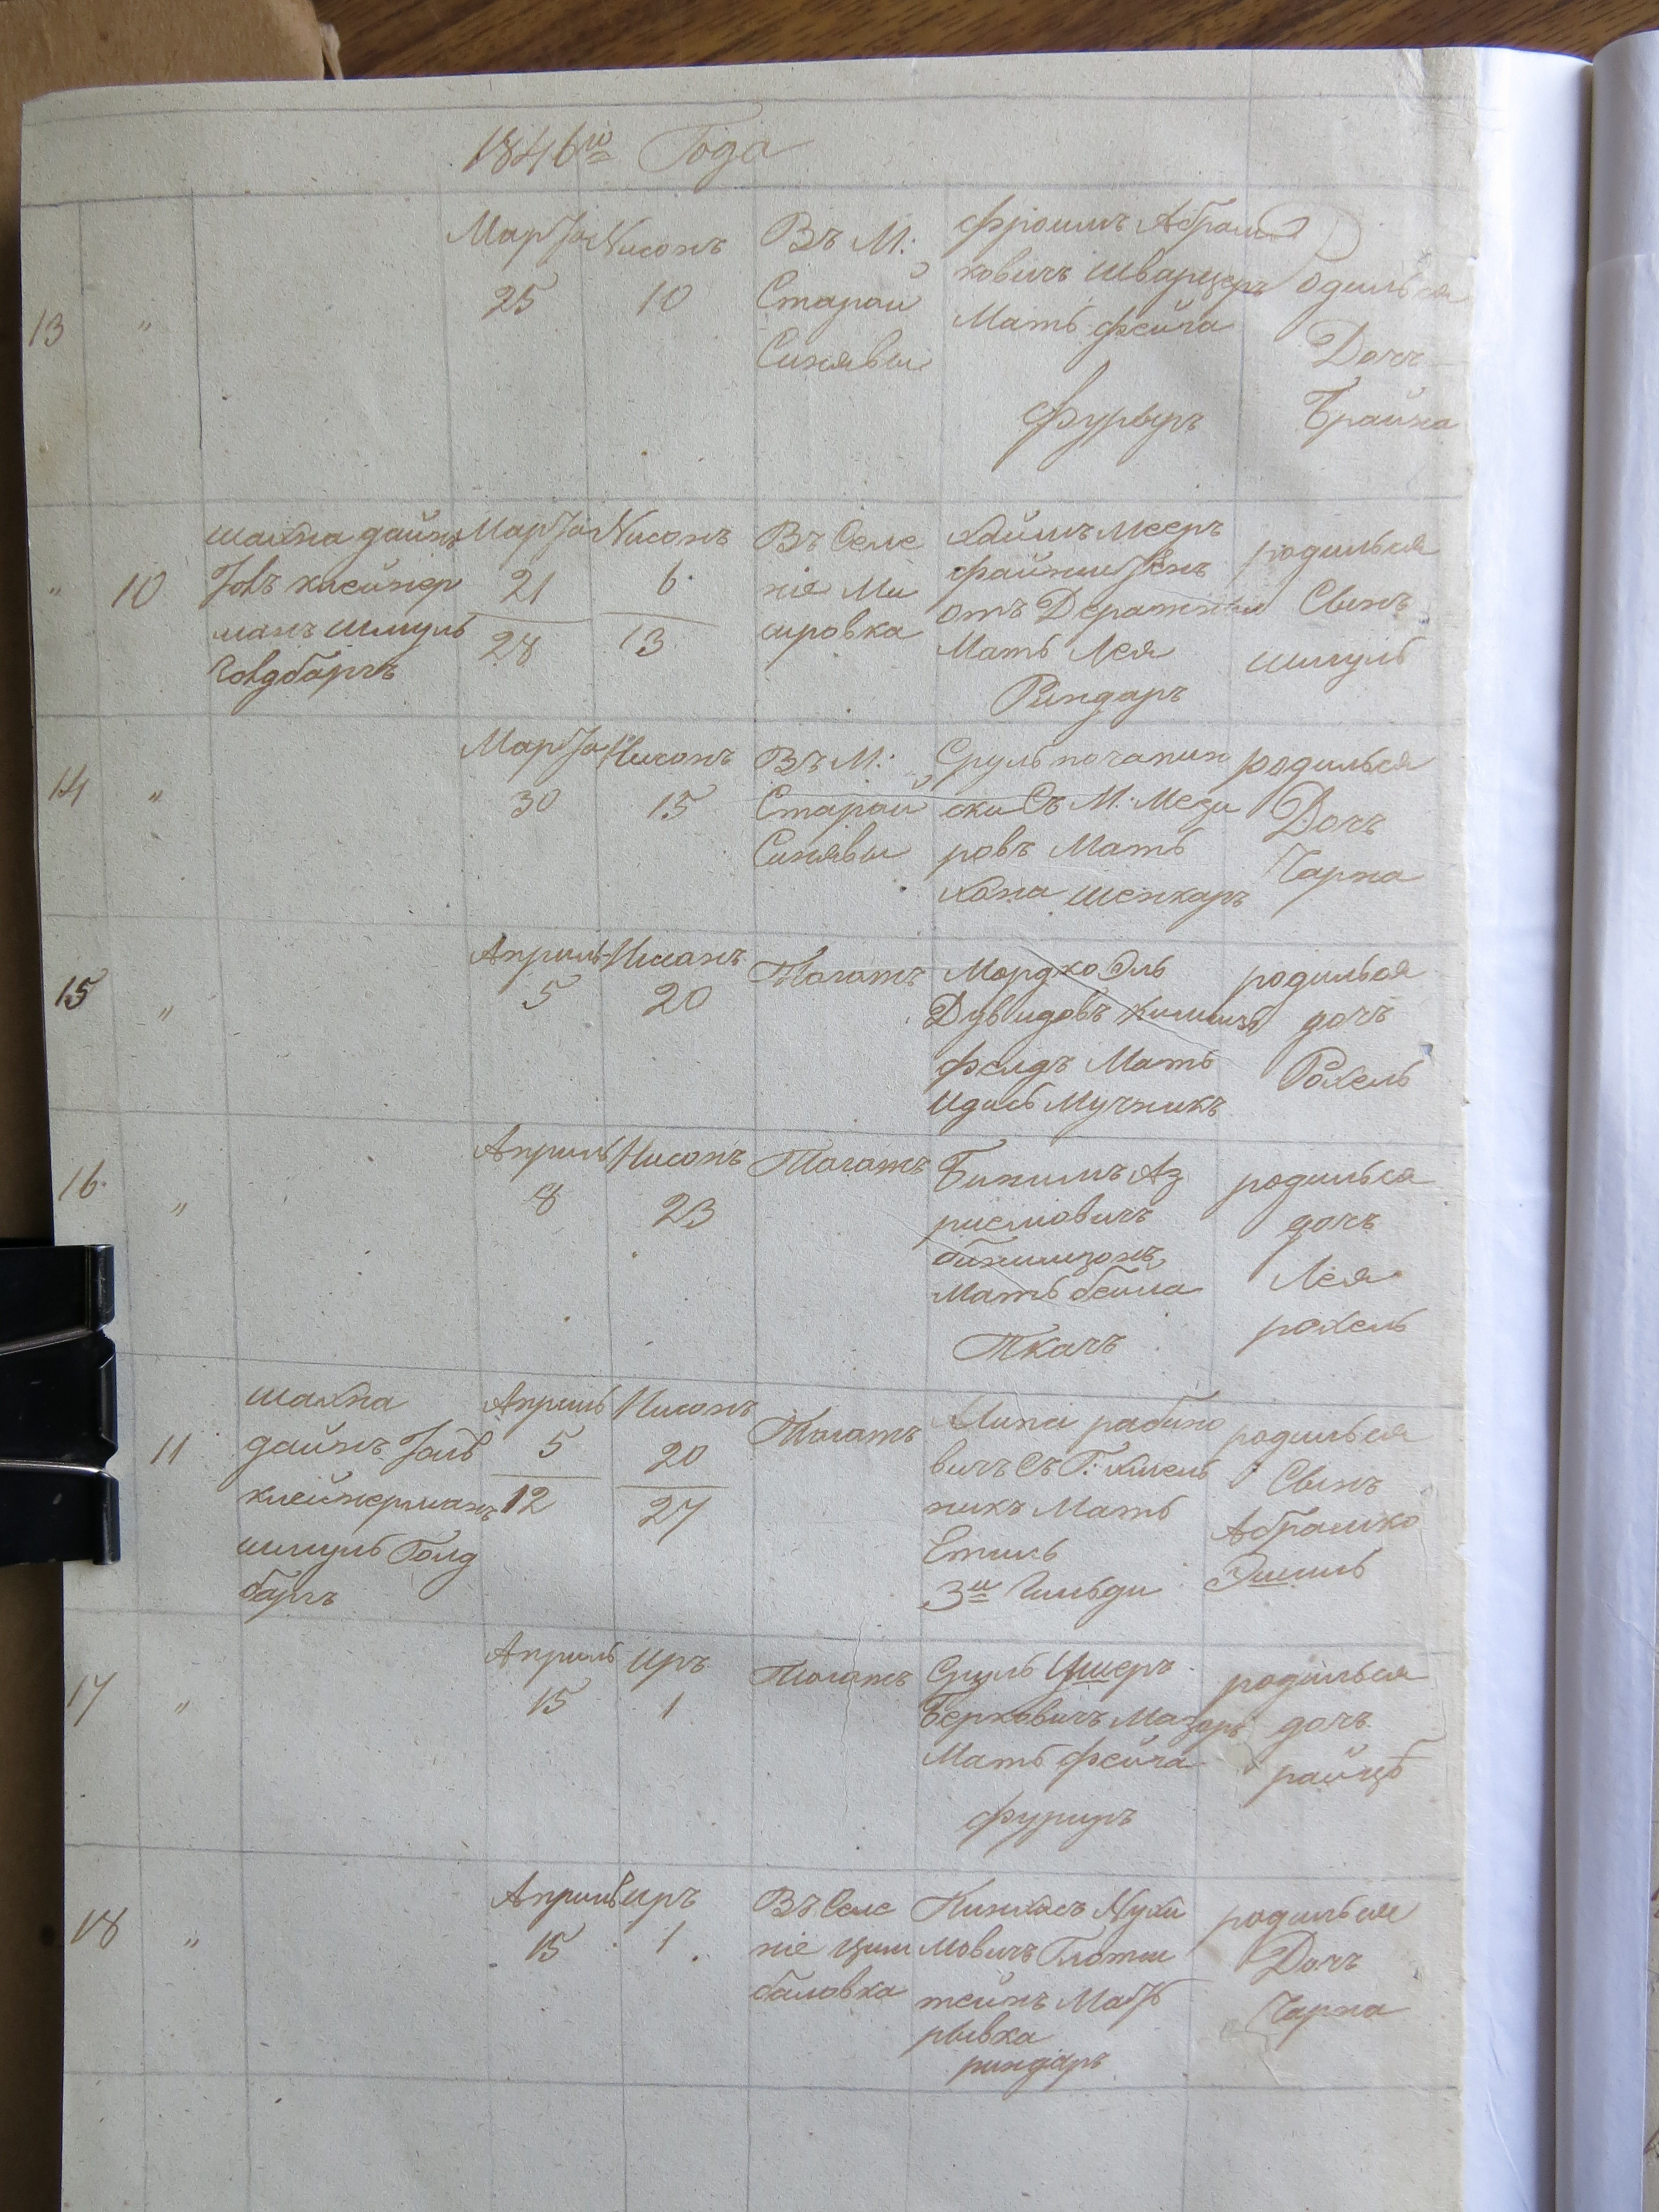 1846го Года
13 "
Марта Нисонъ
25 10
Въ М:
Старой
Синявы
Фроимъ Абрам
ковичъ Шварцеръ
Мать фейга
Фурьеръ
родилься
Дочъ
Брайна
" 10
шахна дайнъ
Іовъ клейнер
манъ шмуль
Говдбаргъ
Марта Нисонъ
21 6
28 13
Въ Селе
ніе Ми
сыровка
хаимъ Мееръ
файнштейнъ
отъ Деражни
Мать Лея
Риндаръ
родилься
Сынъ
шмуль
14 "
Марта Нисонъ
30 15
Въ М:
Старой
Синявы
Сруль почапин
ски Съ М: Межи
ровъ Мать
хана шенкаръ
родилься
Дочъ
Чарна
15 "
Апрель Нисанъ
5 20
Тагамъ
Мордко Эль
Дувидовъ
фелдъ Мать
Идась Мучникъ
родилься
дочъ
Рохель
16. "
Апрель Нисонъ
8 23
Тагамъ
Бинимъ Аз
риеловичъ
бинимзонъ
Мать бейла
Ткачъ
родилься
дочъ
Лея
рохель
11
шахна
дайнъ Іолъ
клейнерманъ
шмуль Голд
баргъ
Апрель Нисонъ
5 20
12 27
Тагамъ
Липа рабино
вичъ Съ Г: хмель
никъ Мать
Етиль
3и Гильди
родилься
Сынъ
Абрамко
17 "
Апрель Иръ
15 1
Тагамъ
Сруль Ушеръ
Берковичъ Мазоръ
Мать фейга
фуриръ
родилься
дочъ
райцъ
18 "
Апрель иръ
15 1
Въ Селе
ніе Цим
баловка
Пинхасъ Нухи
мовичъ Глотш
тейнъ Мать
рывка
риндаръ
родилься
Дочъ
Чарна